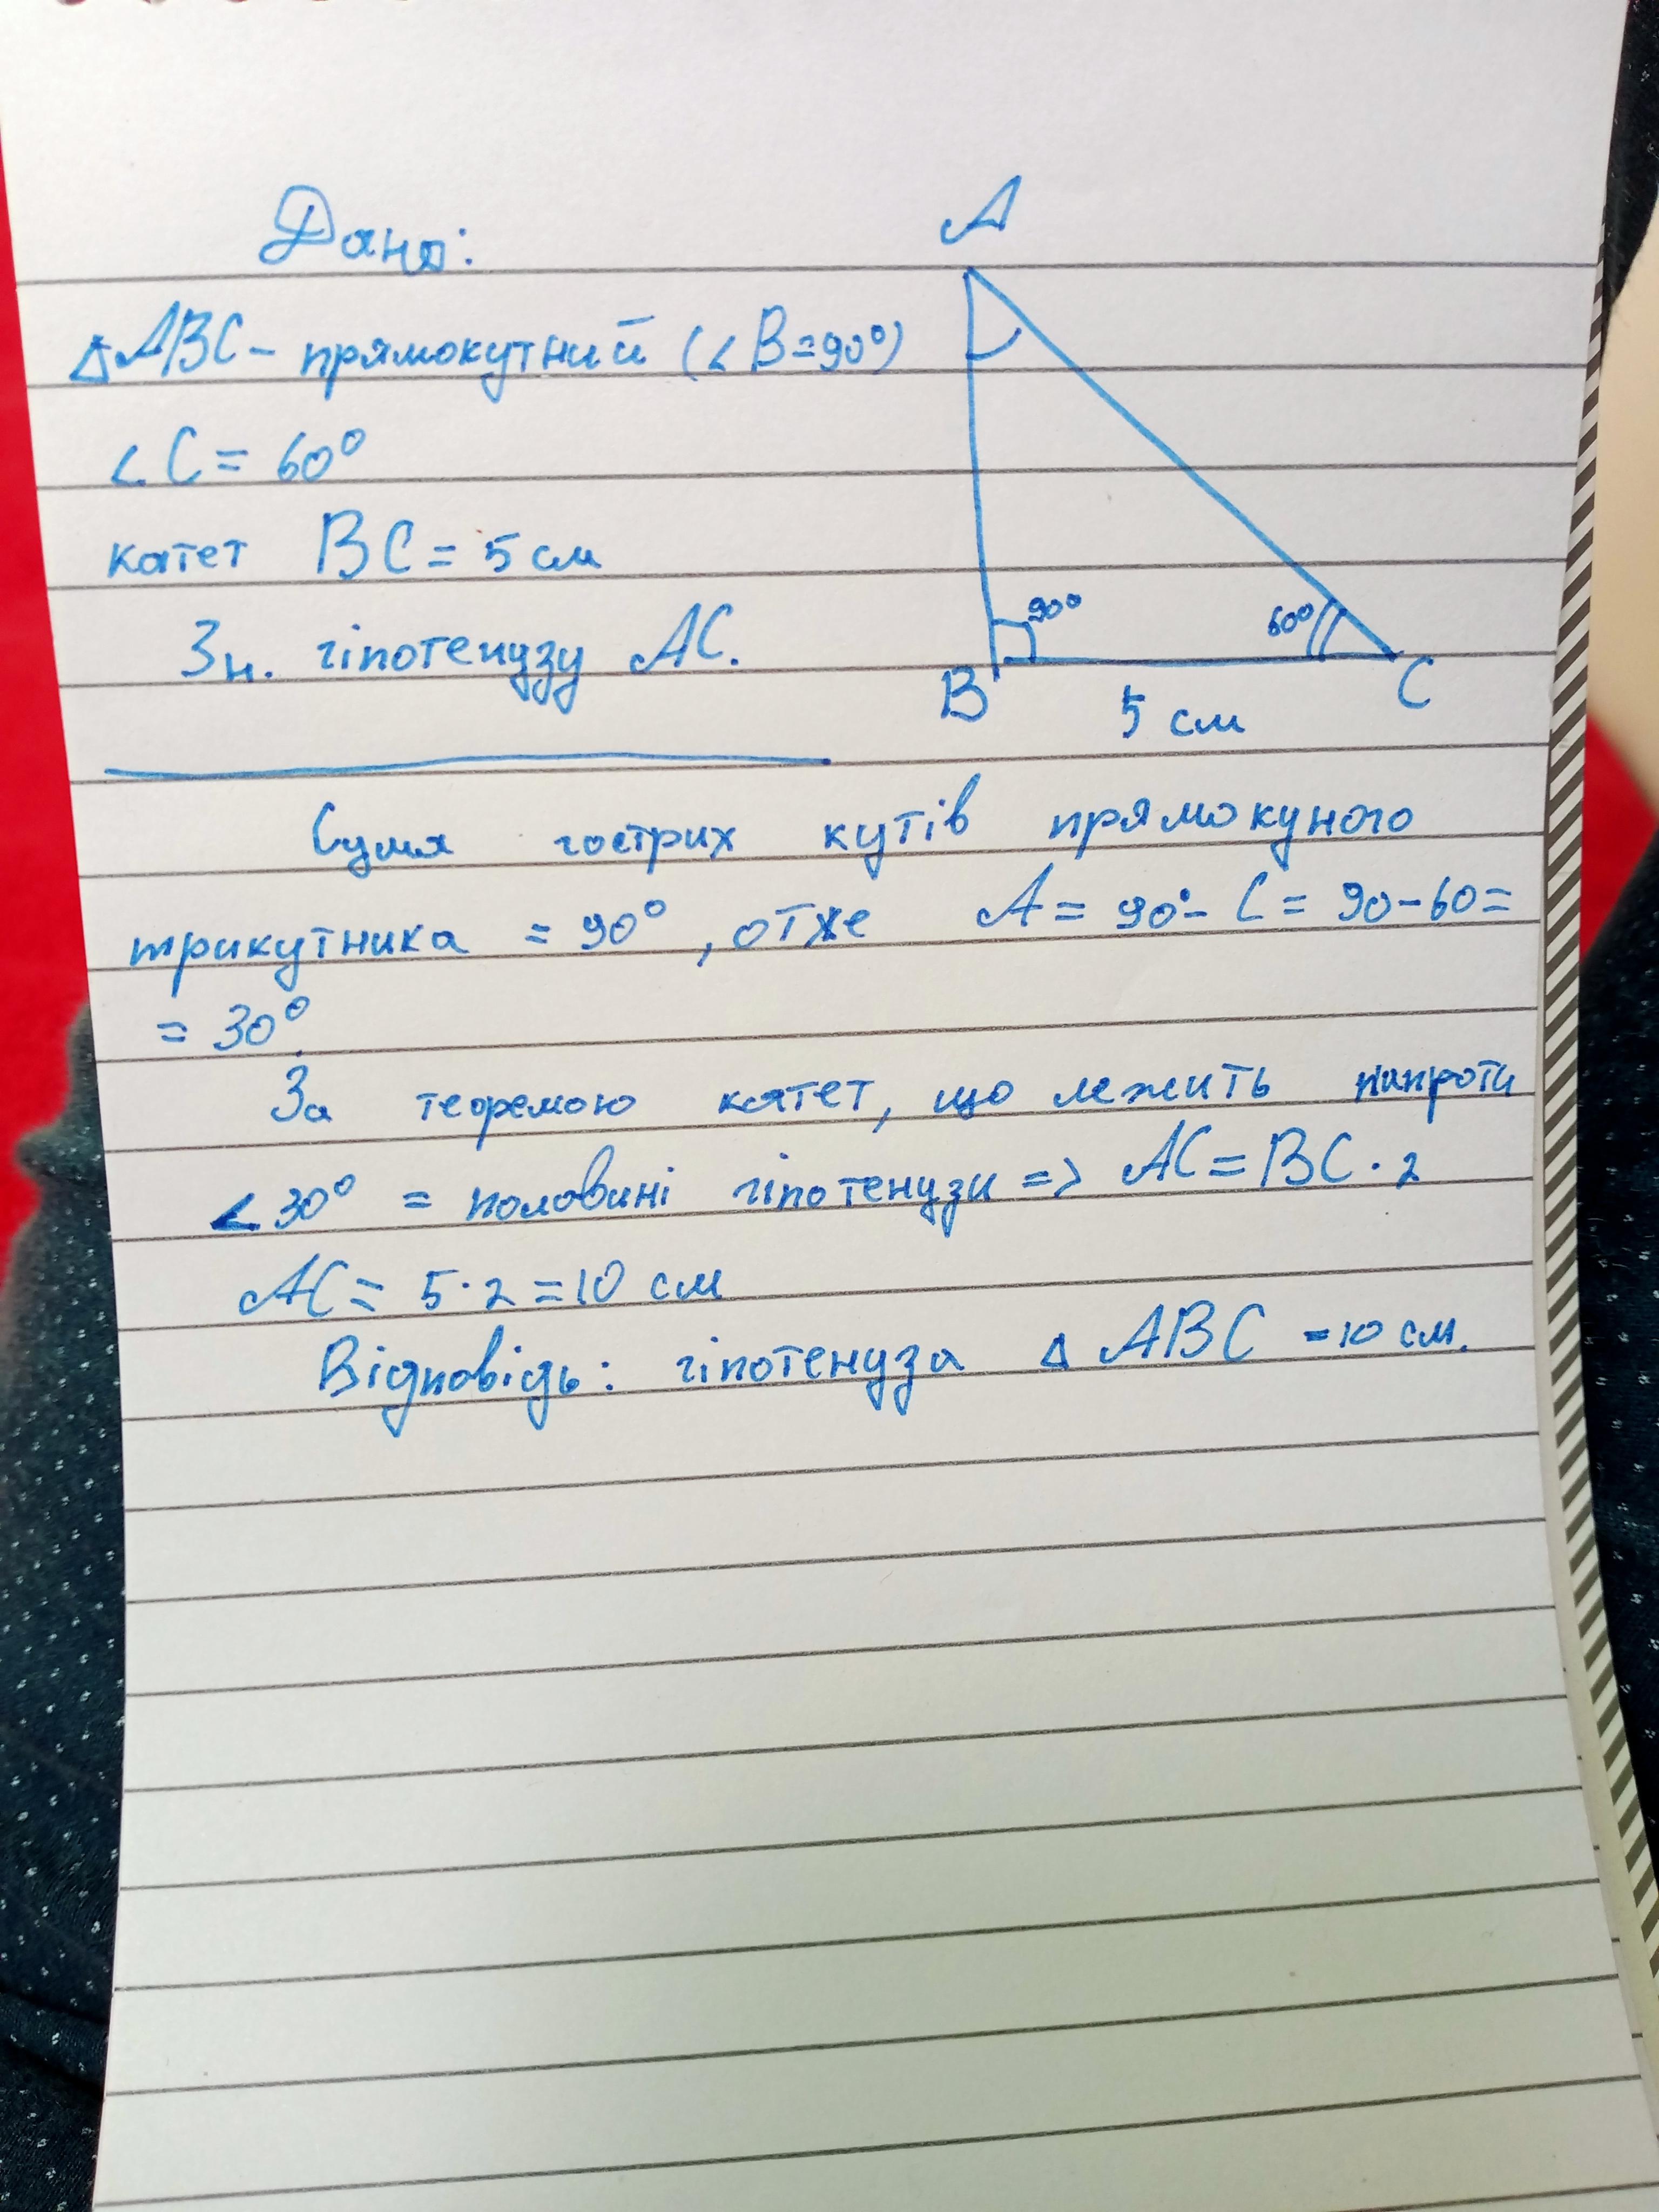 Дано:
△ABC - прямокутний (∠B=90°)
∠C = 60°
катет BC = 5 см
Зн. гіпотенузу AC.
A
90°
60°
B
C
5 см
Сума гострих кутів прямокуного
трикутника = 90°, отже A = 90° - C = 90-60=
= 30°.
За теоремою катет, що лежить напроти
∠30° = половині гіпотенузи => AC = BC · 2
AC = 5·2 = 10 см
Відповідь: гіпотенуза △ ABC = 10 см.